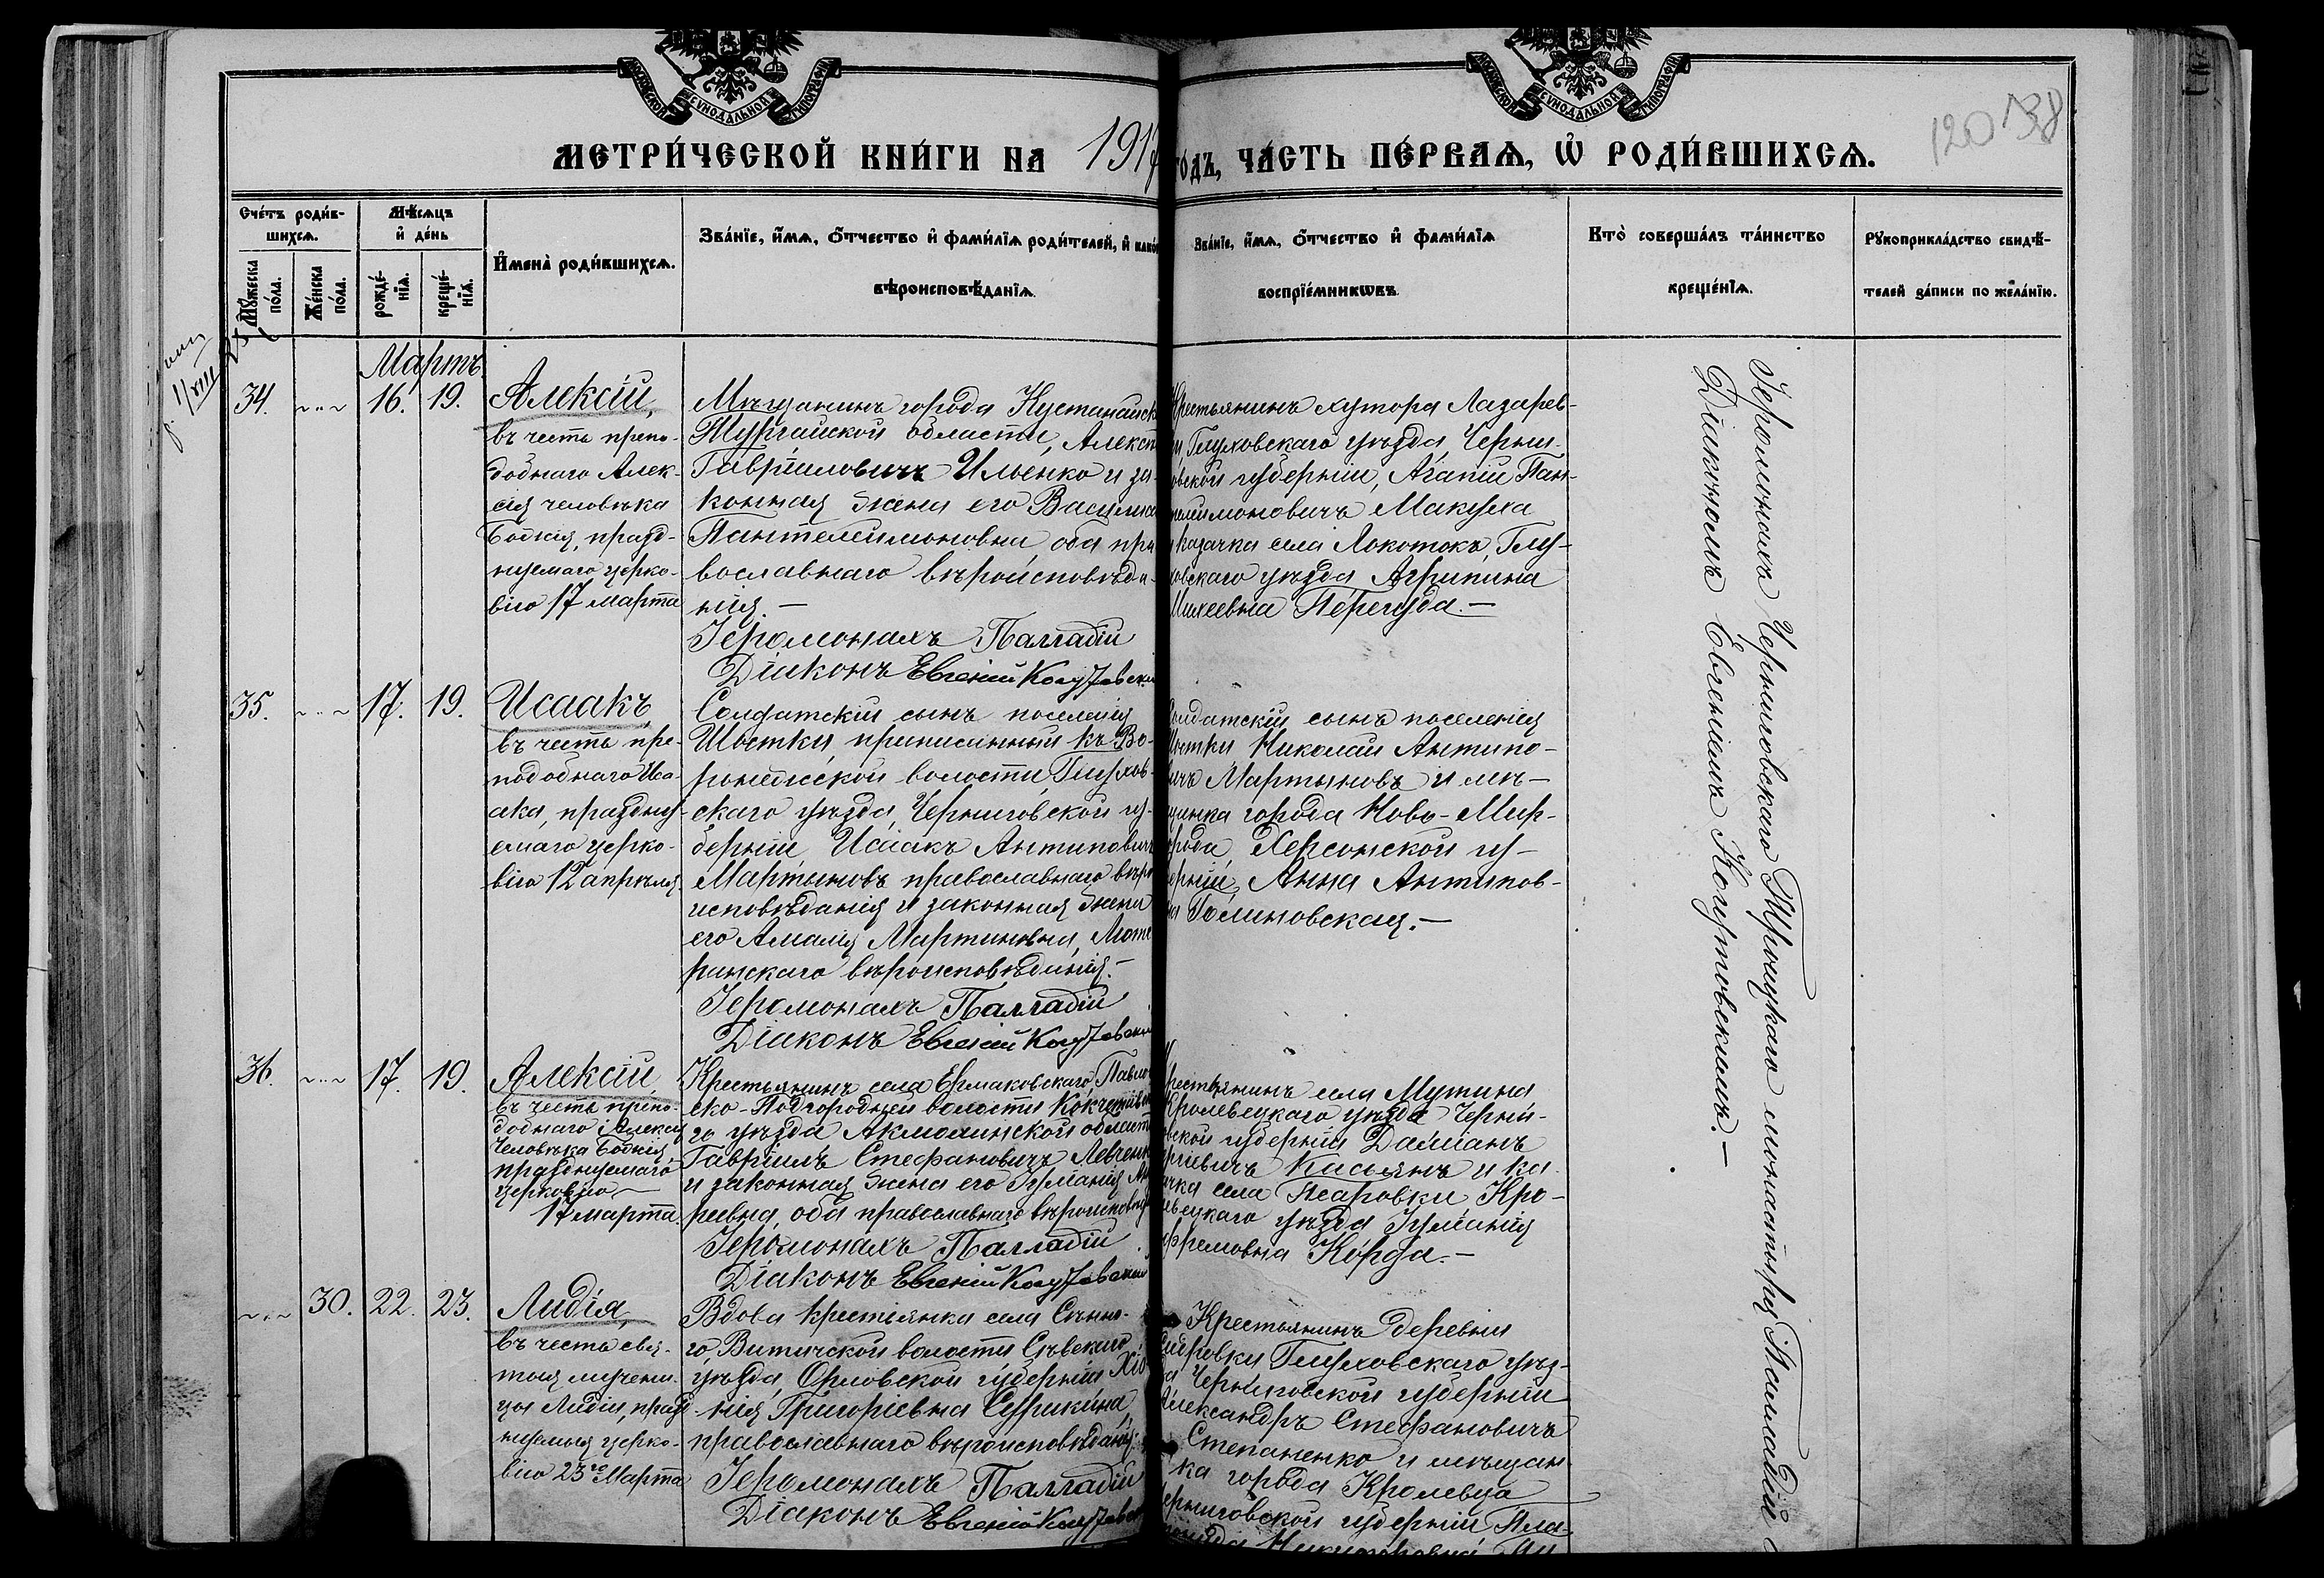 МОСКОВСКОЙ СѴНОДАЛЬНОЙ ТИПОГРАФІИ
МОСКОВСКОЙ СѴНОДАЛЬНОЙ ТИПОГРАФІИ
МЕТРИ́ЧЕСКОЙ КНИ́ГИ НА 1917
ГО́ДЪ, ЧА́СТЬ ПЕ́РВАѦ, Ѽ РОДИ́ВШИХСѦ.
120 138
Сче́тъ роди́в-
шихсѧ.
Мꙋ́жеска
по́ла.
Же́нска
по́ла.
Мѣ́сѧцъ
и҆ де́нь
рожде́-
нїѧ.
креще́-
нїѧ.
И҆мена̀ роди́вшихсѧ.
Зва́нїе, и҆́мѧ, ѻ҆́тчество и҆ фами́лїѧ роди́телей, и҆ како́
вѣроисповѣ́данїѧ.
Зва́нїе, и҆́мѧ, ѻ҆́тчество и҆ фами́лїѧ
воспрїе́мникѡвъ.
Кто̀ соверша́лъ та́инство
креще́нїѧ.
Рꙋкоприкла́дство свидѣ́-
телей за́писи по жела́нїю.
Мартъ.
34.
16. 19.
Алексій,
въ честь препо-
добнаго Алек-
сія человѣка
Божія, празд-
нуемаго церко-
вію 17 марта
Мѣщанинъ города Кустанайск
Тургайской области, Алексѣ
Гавріиловичъ Ильенко и за-
конная жена его Василис
Пантелеимоновна, оба пра
вославнаго вѣроисповѣда-
нія.—
Іеромонахъ Палладій
Діаконъ Евгеній Когутовскій
Крестьянинъ хутора Лазарев-
ки, Глуховскаго уѣзда, Черни-
говской губерніи, Агапій Пан-
телеимоновичъ Макуха
и казачка села Локотокъ, Глу-
ховскаго уѣзда Агрипина
Михеевна Перегуда.—
35.
17. 19.
Исаакъ,
въ честь пре-
подобнаго Иса-
ака, праздну-
емаго церко-
вію 12 апрѣля
Солдатскій сынъ поселенія
Шостки, приписанный къ Во-
ронежской волости, Глухов-
скаго уѣзда, Черниговской гу-
берніи Исаакъ Антиповичъ
Мартыновъ православнаго вѣро
исповѣданія и законная жена
его Амалія Мартиновна, Люте
ранскаго вѣроисповѣданія.—
Іеромонахъ Палладій
Діаконъ Евгеній Когутовскій
Солдатскій сынъ поселенія
Шостки Николай Антипо-
вичъ Мартыновъ и мѣ-
щанка города Ново-Мир-
города, Херсонской гу-
берніи, Анна Антипов-
на Голиновская.—
36.
17. 19.
Алексій,
въ честь препо-
добнаго Алексія
Человѣка Божія,
празднуемаго
церковію
17 марта
Крестьянинъ села Ермаковскаго, Павло
ско-Подгородней волости Кокчетавска
го уѣзда Акмолинской области
Гавріилъ Стефановичъ Левченко
и законная жена его Іуліанія
реевна, оба православнаго вѣроисповѣд
Іеромонахъ Палладій
Діаконъ Евгеній Когутовскій
Крестьянинъ села Мутина
Кролевецкаго уѣзда Черни-
говской губерніи Даміанъ
Касьянъ и ка-
зачка села Псаровки Кро-
левецкаго уѣзда Іуліанія
Ефремовна Корда.—
30. 22. 23.
Лидія,
въ честь свя-
тыя мучени-
цы Лидіи, празд
нуемыя церко-
вію 23го Марта
Вдова крестьянка села Сѣнно-
го, Витичской волости Сѣвскаго
уѣзда Орловской губерніи Хіо
нія Григоріевна Сурикина,
православнаго вѣроисповѣданія:
Іеромонахъ Палладій
Діаконъ Евгеній Когутовскій
Крестьянинъ деревни
Глуховскаго уѣз-
да Черниговской губерніи
Александръ Стефановичъ
Степаненко и мѣщан-
ка города Кролевца
Черниговской губерніи
Іеромонахъ Черниговскаго Троицкаго монастыря Палладій с
Діакономъ Евгеніемъ Когутовскимъ.—